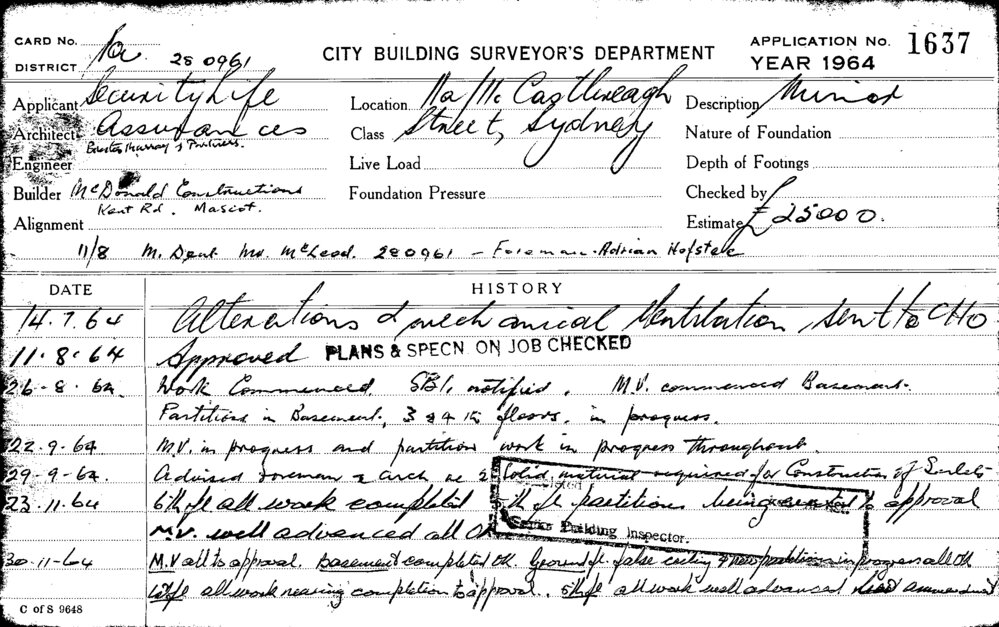 CARD No.
DISTRICT 280961
CITY BUILDING SURVEYOR'S DEPARTMENT
APPLICATION No. 1637
YEAR 1964
Applicant Security Life
Location 11a/11c Castlereagh
Description Minor
Architect Assurances
Class Street, Sydney
Nature of Foundation
Murray & Partners.
Engineer
Live Load
Depth of Footings
Builder McDonald Constructions
Foundation Pressure
Checked by
Kent Rd. Mascot.
Alignment
Estimate £25000.
11/8 M. Dent Mr. McLeod. 280961 - Foreman - Adrian Hofstek
DATE HISTORY
14.7.64 Alterations & mechanical Ventilation sent to CHO
11.8.64 Approved PLANS & SPECN. ON JOB CHECKED
26-8-64. Work Commenced. SBI. notified. M.V. commenced Basement.
Partitions in Basement, 3 & 4th floors. in progress.
22-9-64 M.V. in progress and partition work in progress throughout.
29-9-64. Advised foreman & arch re Solid material required for Construction of
23.11.64 6th fl all work completed th fl partitions being to approval
Building Inspector.
M.V. well advanced all OK
30-11-64 M.V all to approval. Basement completed OK. Ground fl. false ceiling & new partitions in progress all OK
fl all work nearing completion to approval. 5th fl all work well advanced
C of S 9648